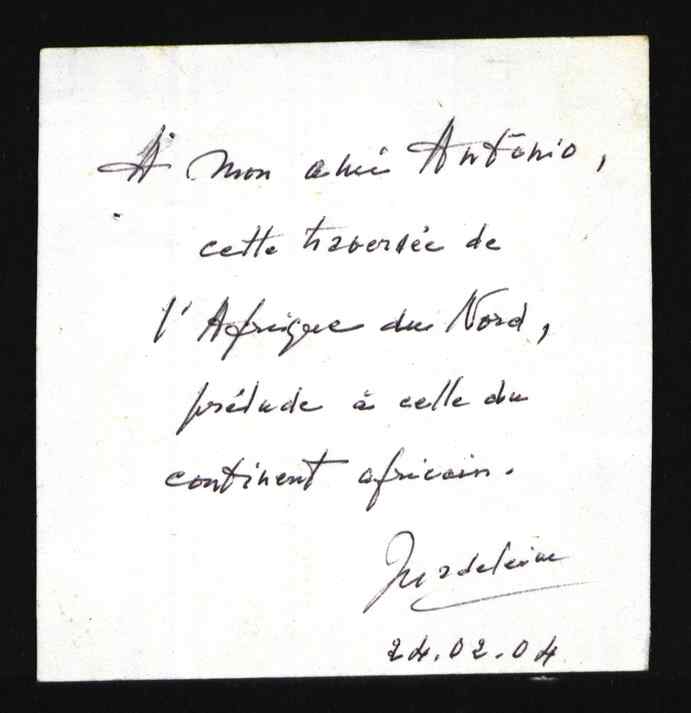 A mon ami Antonio,
cette traversée de
l'Afrique du Nord,
prélude à celle du
continent africain.
Madeleine
24.02.04